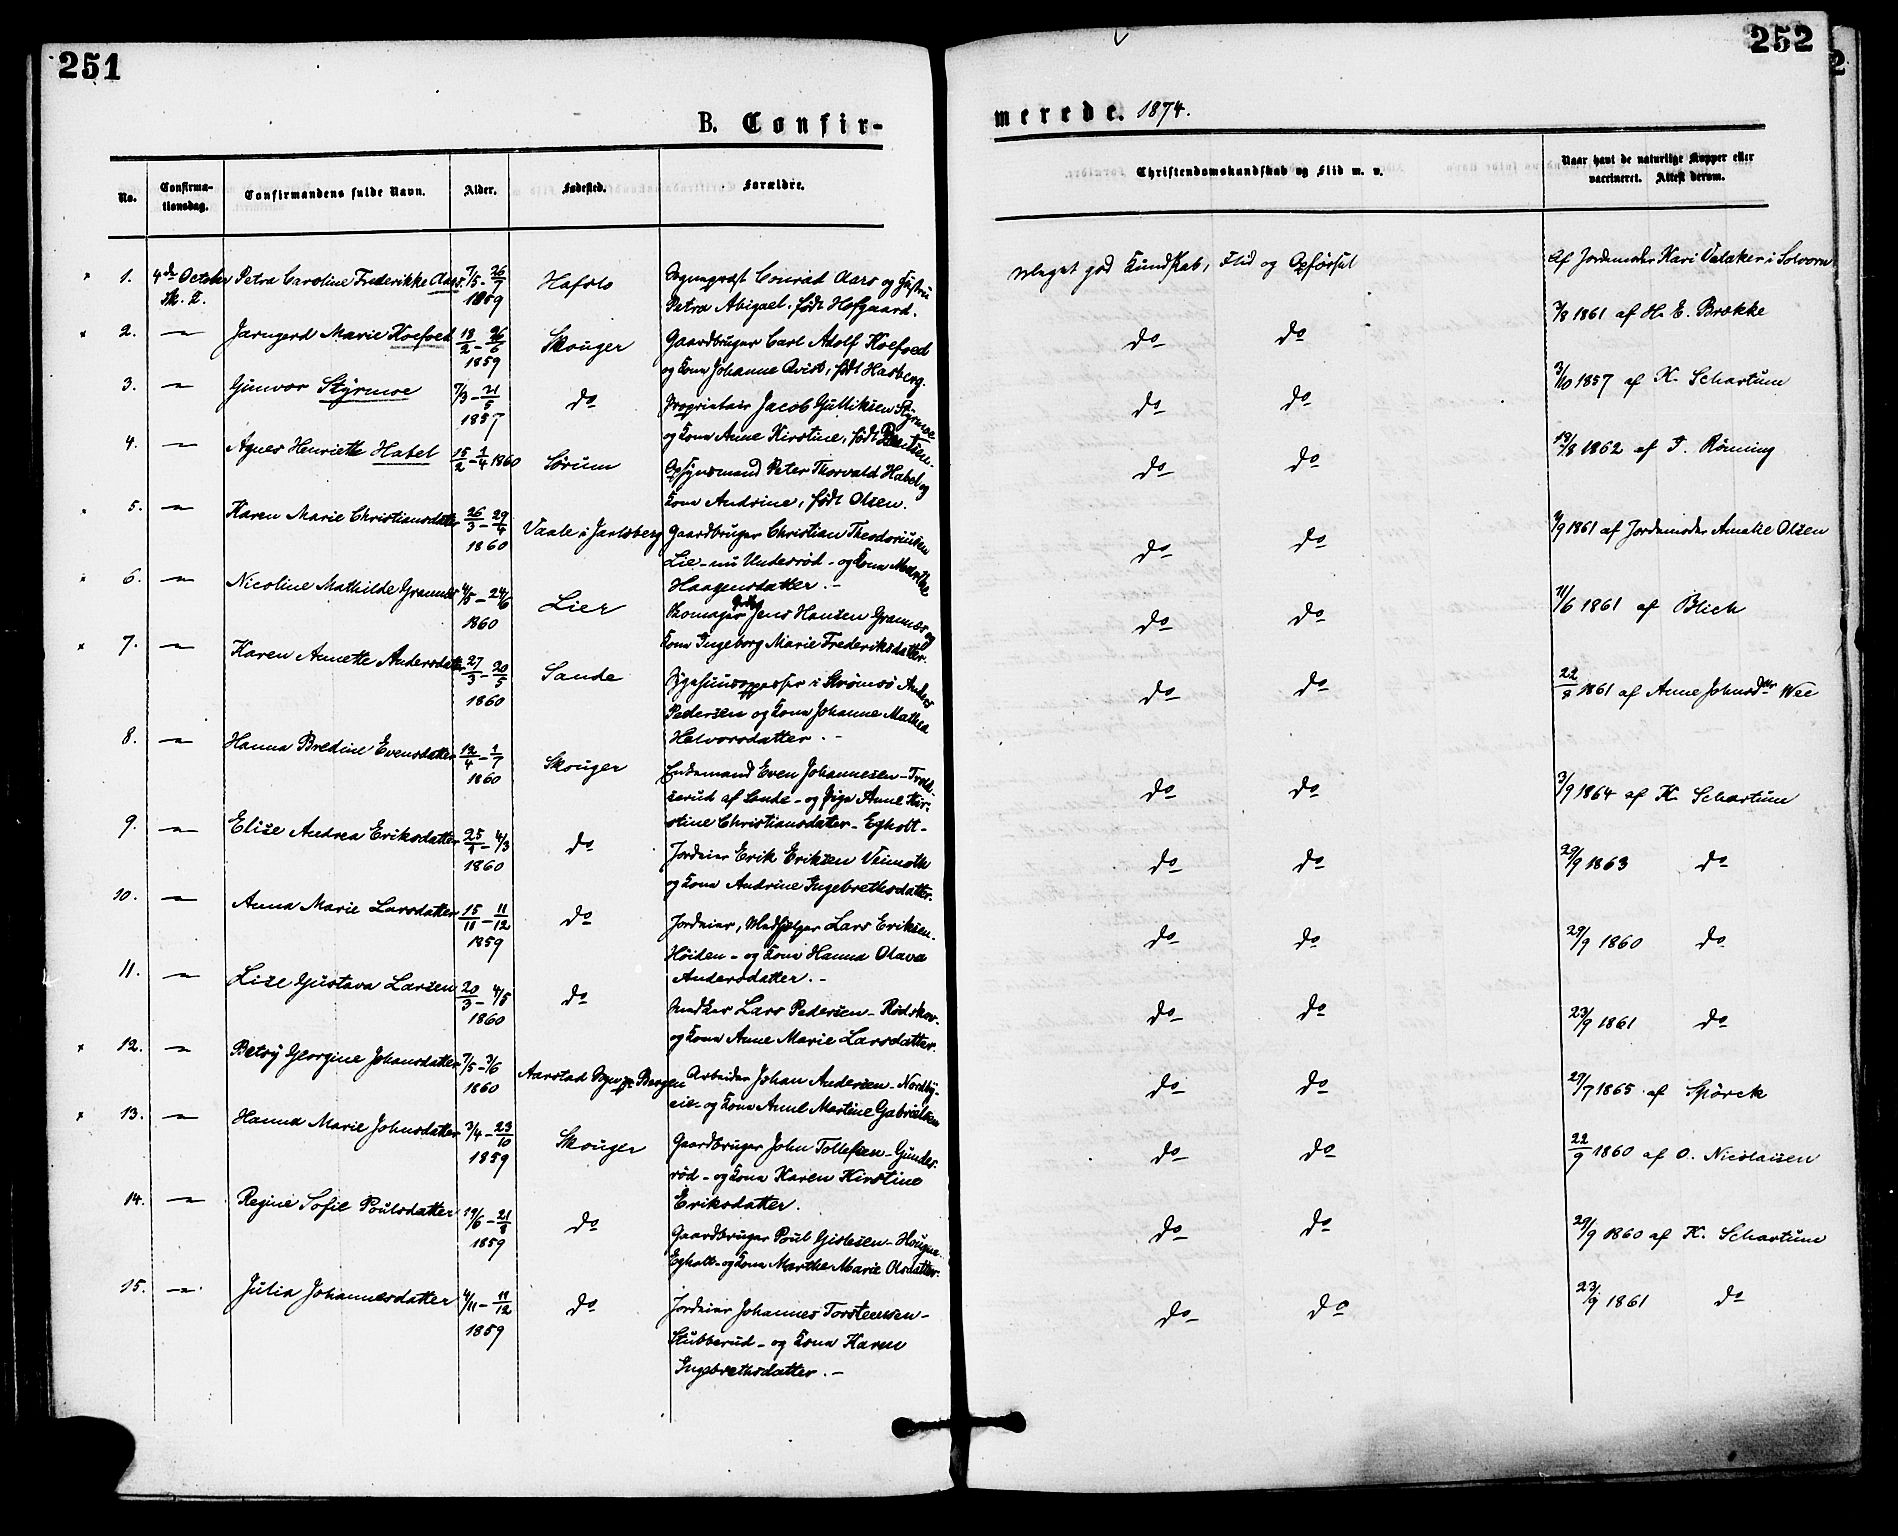 251
252
B. Confir-
merede. 1874.
No.
Confirma-
tionsdag.
Confirmandens fulde Navn.
Alder.
Fødested.
Forældre.
Christendomskundskab og Flid m. v.
Naar havt de naturlige Kopper eller
vaccineret. Attest derom.
1. 4de October Petra Caroline Frederikke Aars 7/5 - 26/7 1859 Hafslo
Sogneprest Conrad Aars og Hustru
Petra Abigael, født Hofgaard.
Meget god Kundskab, Flid og Opførsel
Af Jordemoder Kari Valaker i Solvorn
2. — Jarngerd Marie Koefoed 18/2 - 26/6 1859 Skouger
Gaardbruger Carl Adolf Koefoed
og Kona Johanne Qvist, født Hasberg.
do do
7/8 1861 af H. E. Brække
3. — Gunvor Styrmoe 7/3 - 21/5 1857 do
Proprietair Jacob Gulliksen Styrmoe
og Kona Anne Kirstine, født Bentsen.
do do
3/10 1857 af K. Schartum
4. — Agnes Henriette Habel 15/2 - 1/4 1860 Sørum
Opsynsmand Peter Thorvald Habel og
Kona Andrine, født Olsen.
do do
19/8 1862 af T. Röning
5. — Karen Marie Christiansdatter 26/3 - 29/4 1860 Vaale i Jarlsberg
Gaardbruger Christian Theodoriusen
Lie - nu Underød - og Kona Marthe
Haagensdatter. -
do do
4/9 1861 af Jordemoder Amalie Olsen
6. — Nicoline Mathilde Grannæs 4/5 - 24/6 1860 Lier
Skomager Jens Hansen Grannæs og
Kona Ingeborg Marie Frederiksdatter.
do do
11/6 1861 af Blich
7. — Karen Annette Andersdatter 27/3 - 20/5 1860 Sande
i Strømsø Anders
Pedersen og Kona Johanne Mathea
Halvorsdatter. -
do do
22/8 1861 af Anne Johnsdtr Wee
8. — Hanna Bredine Evensdatter 12/4 - 1/7 1860 Skouger
Enkemand Even Johannesen - Trold-
serud af Sande - og Pige Anne Kir-
stine Christiansdatter - Egholt -
do do
3/9 1864 af K. Schartum
9. — Elise Andrea Eriksdatter 25/1 - 4/3 1860 do
Jordeier Erik Eriksen Veimoth
og Kona Andrine Ingebrethsdatter.
do do
29/9 1863 do
10. — Anna Marie Larsdatter 15/11 - 11/12 1859 do
Jordeier, Medhjelper Lars Eriksen -
Høiden - og Kona Hanna Olava
Andersdatter. -
do do
29/9 1860 do
11. — Lise Gustava Larsen 20/3 - 4/5 1860 do
Snedker Lars Pedersen - Rødskov -
og Kona Anne Marie Larsdatter.
do do
23/9 1861 do
12. — Betsy Georgine Johansdatter 7/5 - 3/6 1860 Aarstad Sogn pr. Bergen
Arbeider Johan Andersen - Nordby-
eie - og Kona Anne Martine Gabrielsen
do do
29/7 1865 af Spörck
13. — Hanna Marie Johnsdatter 3/4 - 23/10 1859 Skouger
Gaardbruger John Tollefsen - Gundes-
rød - og Kona Karen Kirstine
Eriksdatter.
do do
22/9 1860 af O. Nicolaisen
14. — Regine Sofie Poulsdatter 19/6 - 21/8 1859 do
Gaardbruger Poul Gislesen - Hougne-
Egholt - og Kona Marthe Marie Olsdatter.
do do
29/9 1860 af K. Schartum
15. — Julia Johannesdatter 4/11 - 11/12 1859 do
Jordeier Johannes Torstensen -
Stubberud - og Kona Karen
Ingebrethsdatter. -
do do
23/9 1861 do